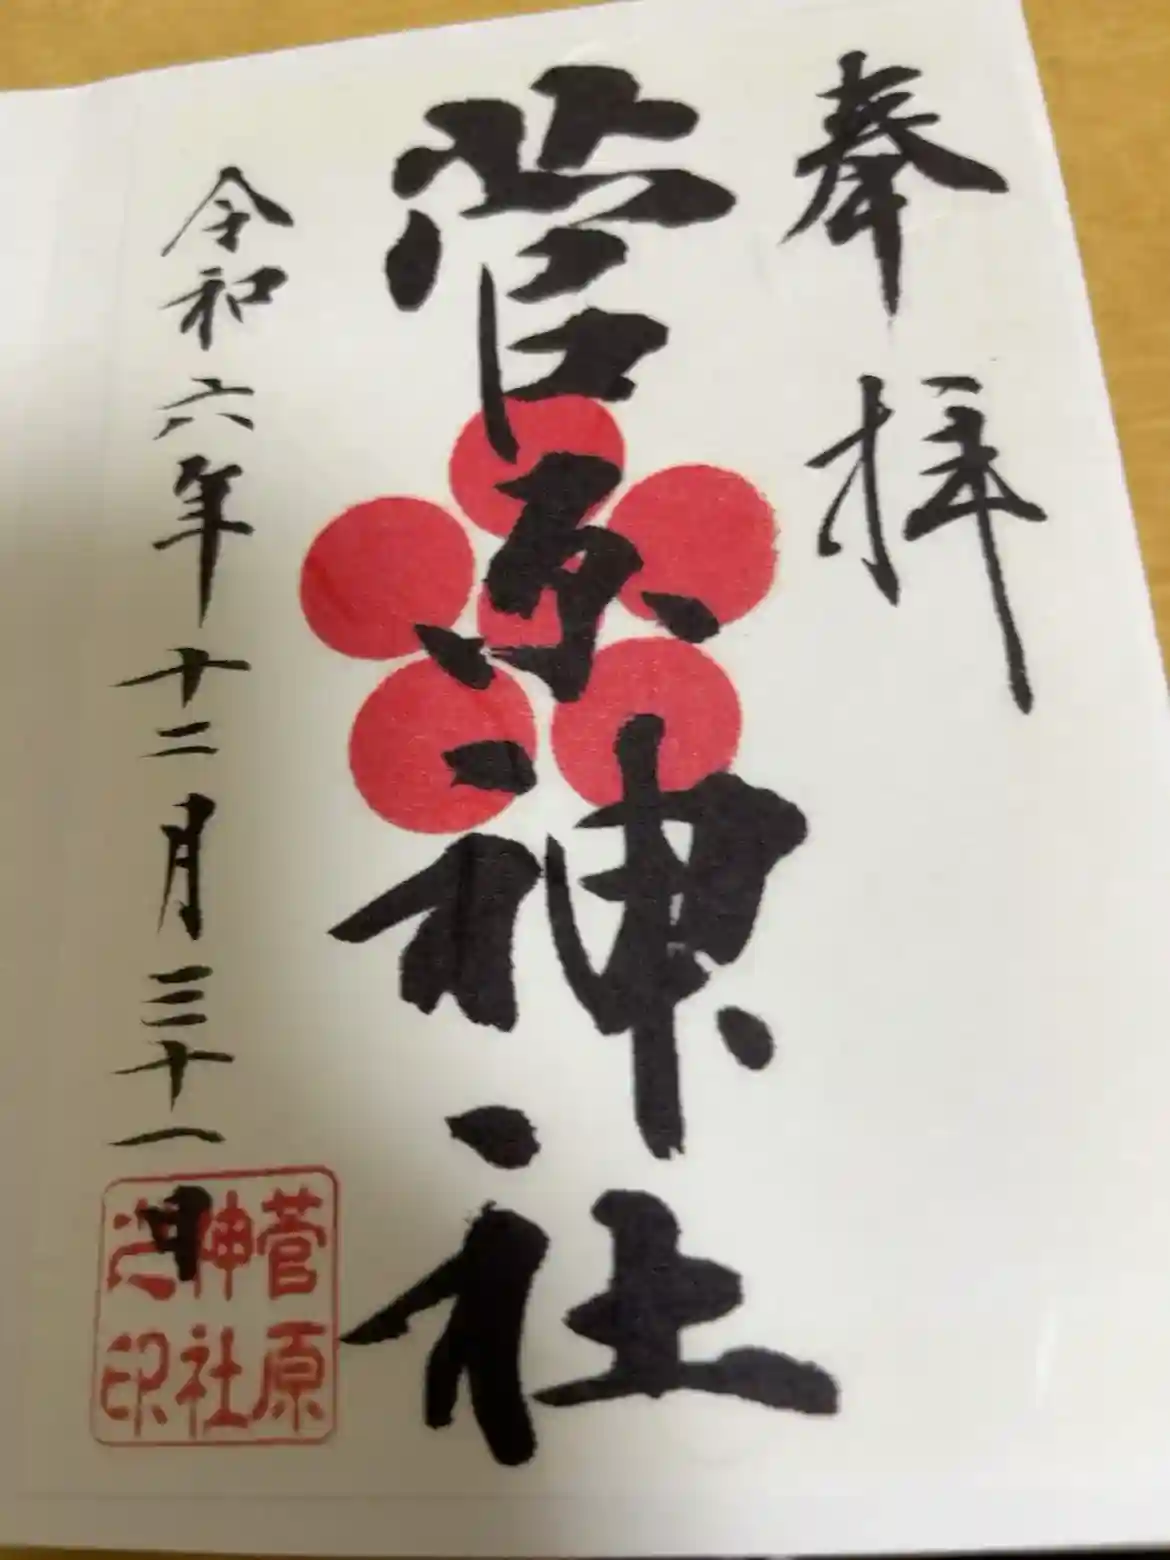 奉拝
菅原神社
令和六年十二月三十一日
菅原
神社
之印